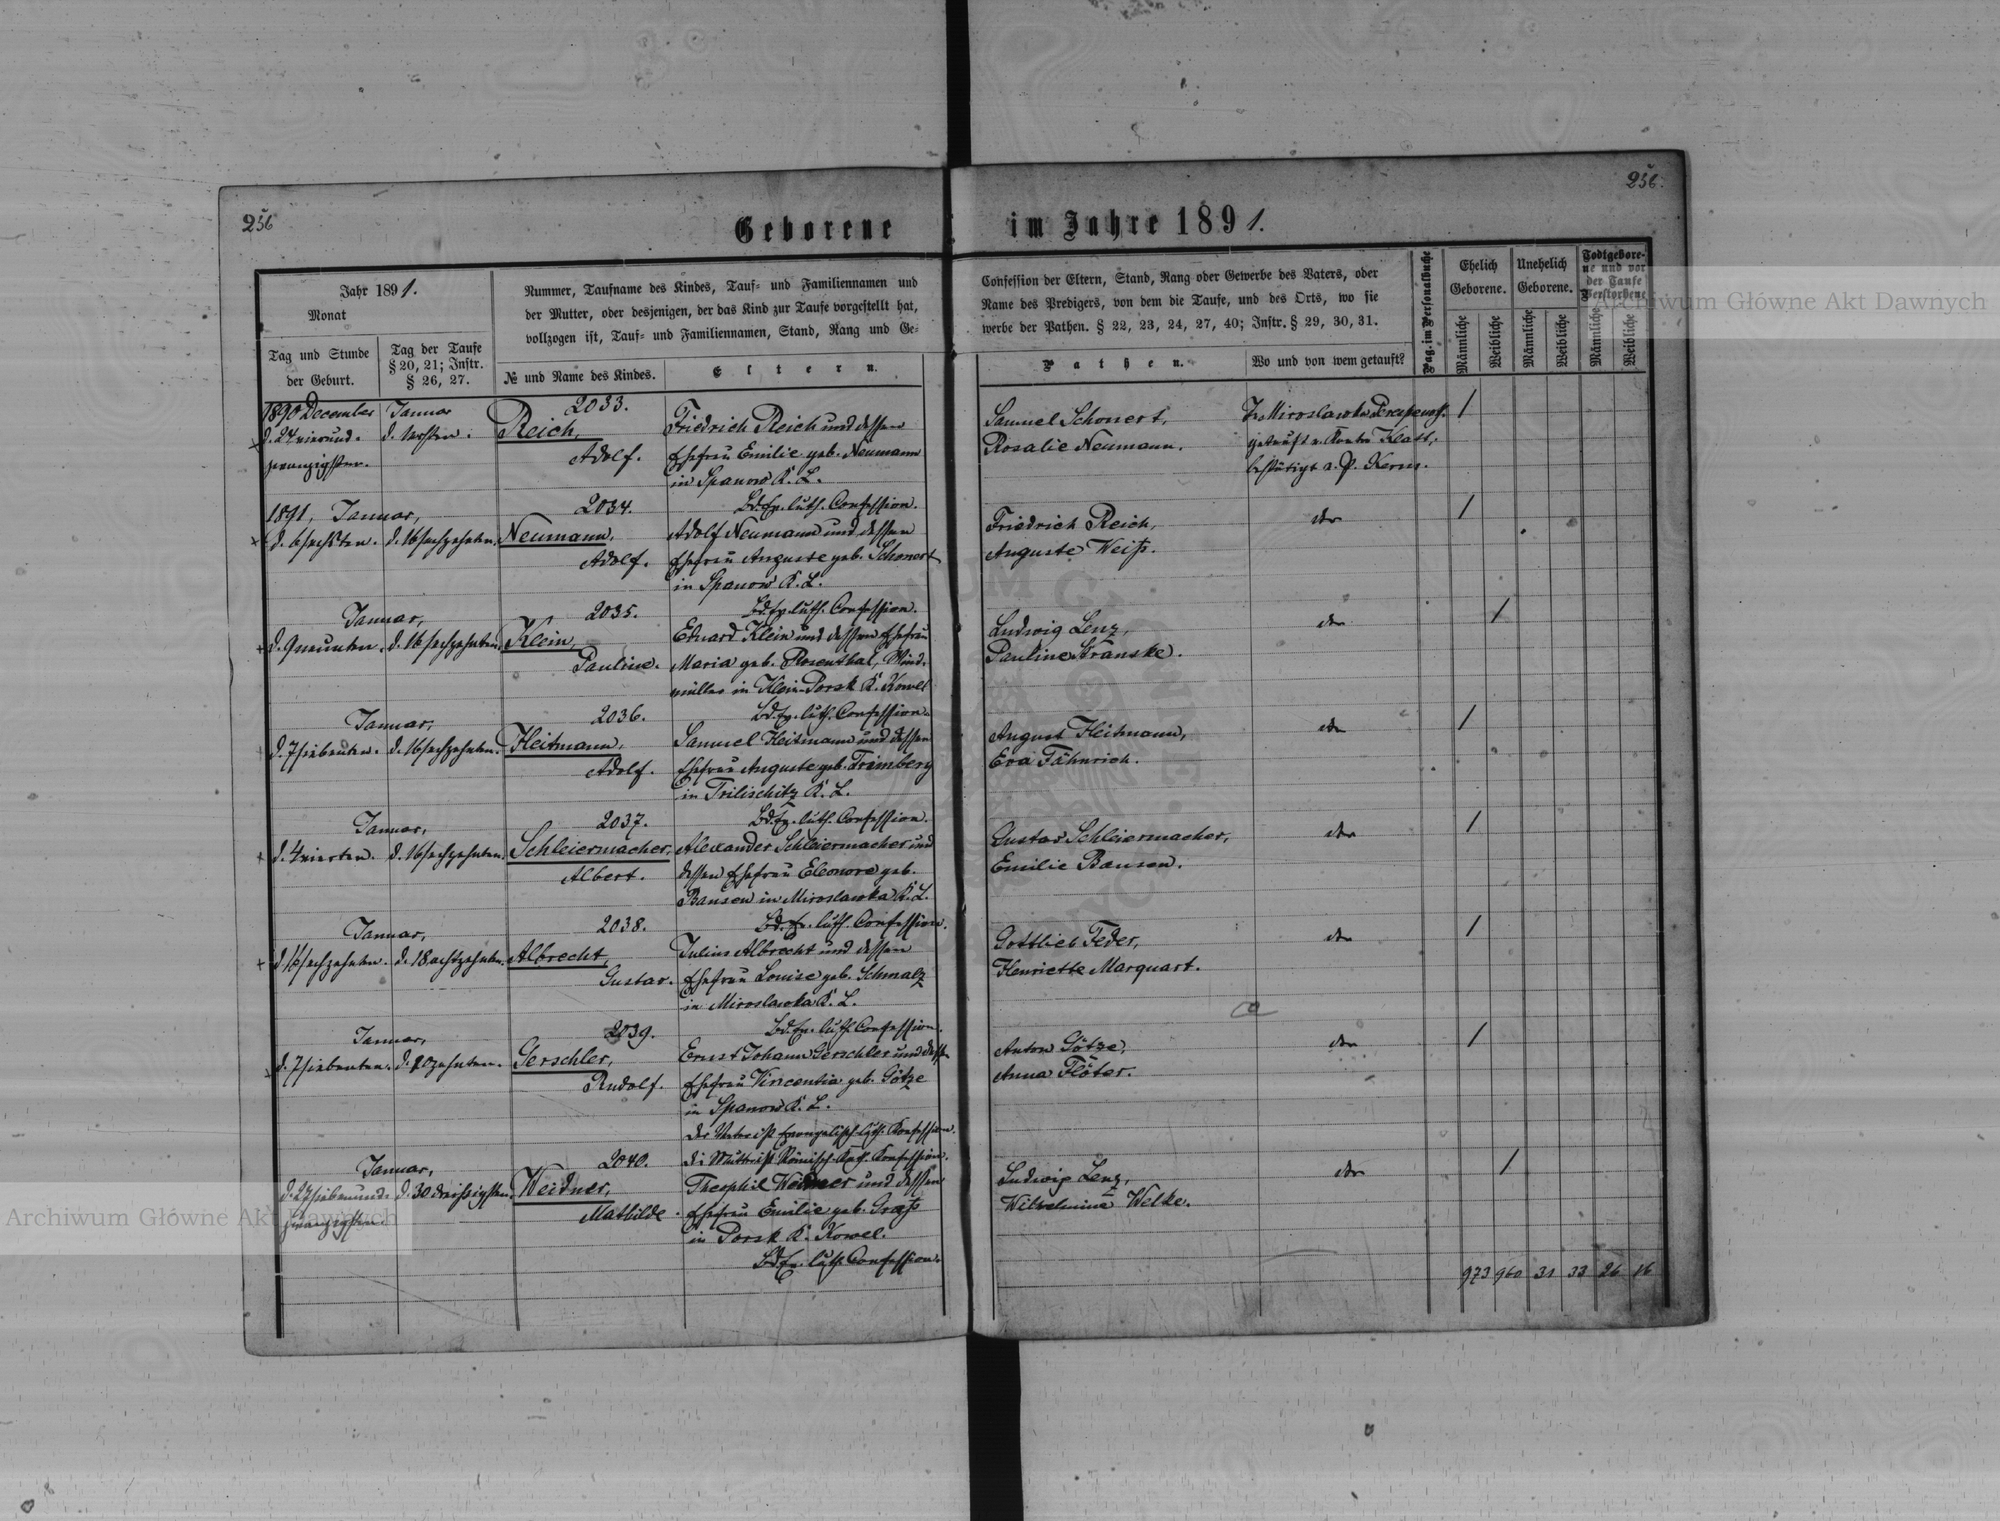 256
256.
Geborene im Jahre 1891.
Jahr 1891.
Monat
Tag und Stunde
der Geburt.
Tag der Taufe
§ 20, 21; Instr.
§ 26, 27.
Nummer, Taufname des Kindes, Tauf- und Familiennamen und
der Mutter, oder desjenigen, der das Kind zur Taufe vorgestellt hat,
vollzogen ist, Tauf- und Familiennamen, Stand, Rang und Ge-
№ und Name des Kindes.
Eltern.
Confession der Eltern, Stand, Rang oder Gewerbe des Vaters, oder
Name des Predigers, von dem die Taufe, und des Orts, wo sie
werbe der Pathen. § 22, 23, 24, 27, 40; Instr. § 29, 30, 31.
Pathen.
Wo und von wem getauft?
Pag. im Personalbuche
Ehelich
Geborene.
Unehelich
Geborene.
Todtgebore-
ne und vor
der Taufe
Verstorbene
Männliche
Weibliche
Männliche
Weibliche
Männliche
Weibliche
1890 December
d. 24 vierund-
zwanzigsten.
Januar
d. 1ersten.
2033.
Reich,
Adolf.
Friedrich Reich und dessen
Ehefrau Emilie geb. Neumann
in Spanow K. L.
Bd. Ev. luth. Confession.
Samuel Schonert,
Rosalie Neumann.
In Miroslawka
getauft v. Klatt,
bestätigt a. P. Kerm.
/
1891, Januar,
d. 6 sechsten. d. 16 sechzehnten.
2034.
Neumann,
Adolf.
Adolf Neumann und dessen
Ehefrau Auguste geb. Schonert
in Spanow K. L.
Bd. Ev. luth. Confession.
Friedrich Reich,
Auguste Weiß.
/
Januar,
d. 9 neunten. d. 16 sechzehnten.
2035.
Klein,
Pauline.
Eduard Klein und dessen Ehefrau
Maria geb. Rosenthal, Wind-
müller in Klein-Porsk K. Kowel
Bd. Ev. luth. Confession.
Ludwig Lenz,
Pauline Kranske.
/
Januar,
d. 7 siebenten. d. 16 sechzehnten.
2036.
Heitmann,
Adolf.
Samuel Heitmann und dessen
Ehefrau Auguste geb. Trimberg
in Trilischitz K. L.
Bd. Ev. luth. Confession.
August Heitmann,
Eva Fähnrich.
/
Januar,
d. 4 vierten. d. 16 sechzehnten.
2037.
Schleiermacher,
Albert.
Alexander Schleiermacher und
dessen Ehefrau Eleonore geb.
Bansen in Miroslawka K. L.
Bd. Ev. luth. Confession.
Gustav Schleiermacher,
Emilie Bansen.
/
Januar,
d. 16 sechzehnten. d. 18 achtzehnten.
2038.
Albrecht,
Gustav.
Julius Albrecht und dessen
Ehefrau Louise geb. Schmalz
in Miroslawka K. L.
Bd. Ev. luth. Confession.
Gottlieb Feder,
Henriette Marquart.
/
Januar,
d. 7 siebenten.
2039.
Gerschler,
Rudolf.
Ernst Johann Gerschler und dessen
Ehefrau Vincentia geb. Götze
in Spanow K. L.
der Vater ist Evangelisch-luth. Konfession.
die Mutter ist Römisch-Kath. Konfession.
Anton Götze,
Anna Flöter.
/
Januar,
d. 27 siebenund-
zwanzigsten.
d. 30 dreissigsten.
2040.
Weidner,
Mathilde.
Theophil Weidner und dessen
Ehefrau Emilie geb. Graß
in Porsk K. Kowel.
Bd. Ev. luth. Confession.
Ludwig Lenz,
Wilhelmine Welke.
/
973 960 31 33 26 16
Archiwum Główne Akt Dawnych
Archiwum Główne Akt Dawnych